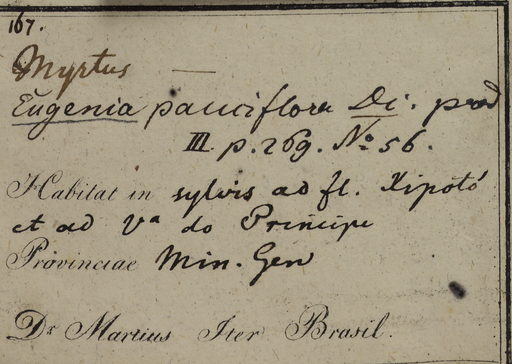 167.
Myrtus —
Eugenia pauciflora Dc. prod
III. p. 269. No 56.
Habitat in sylvis ad fl. Xipotó
et ad Va do Principe
Provinciae Min. Gen
Dr Martius Iter Brasil.